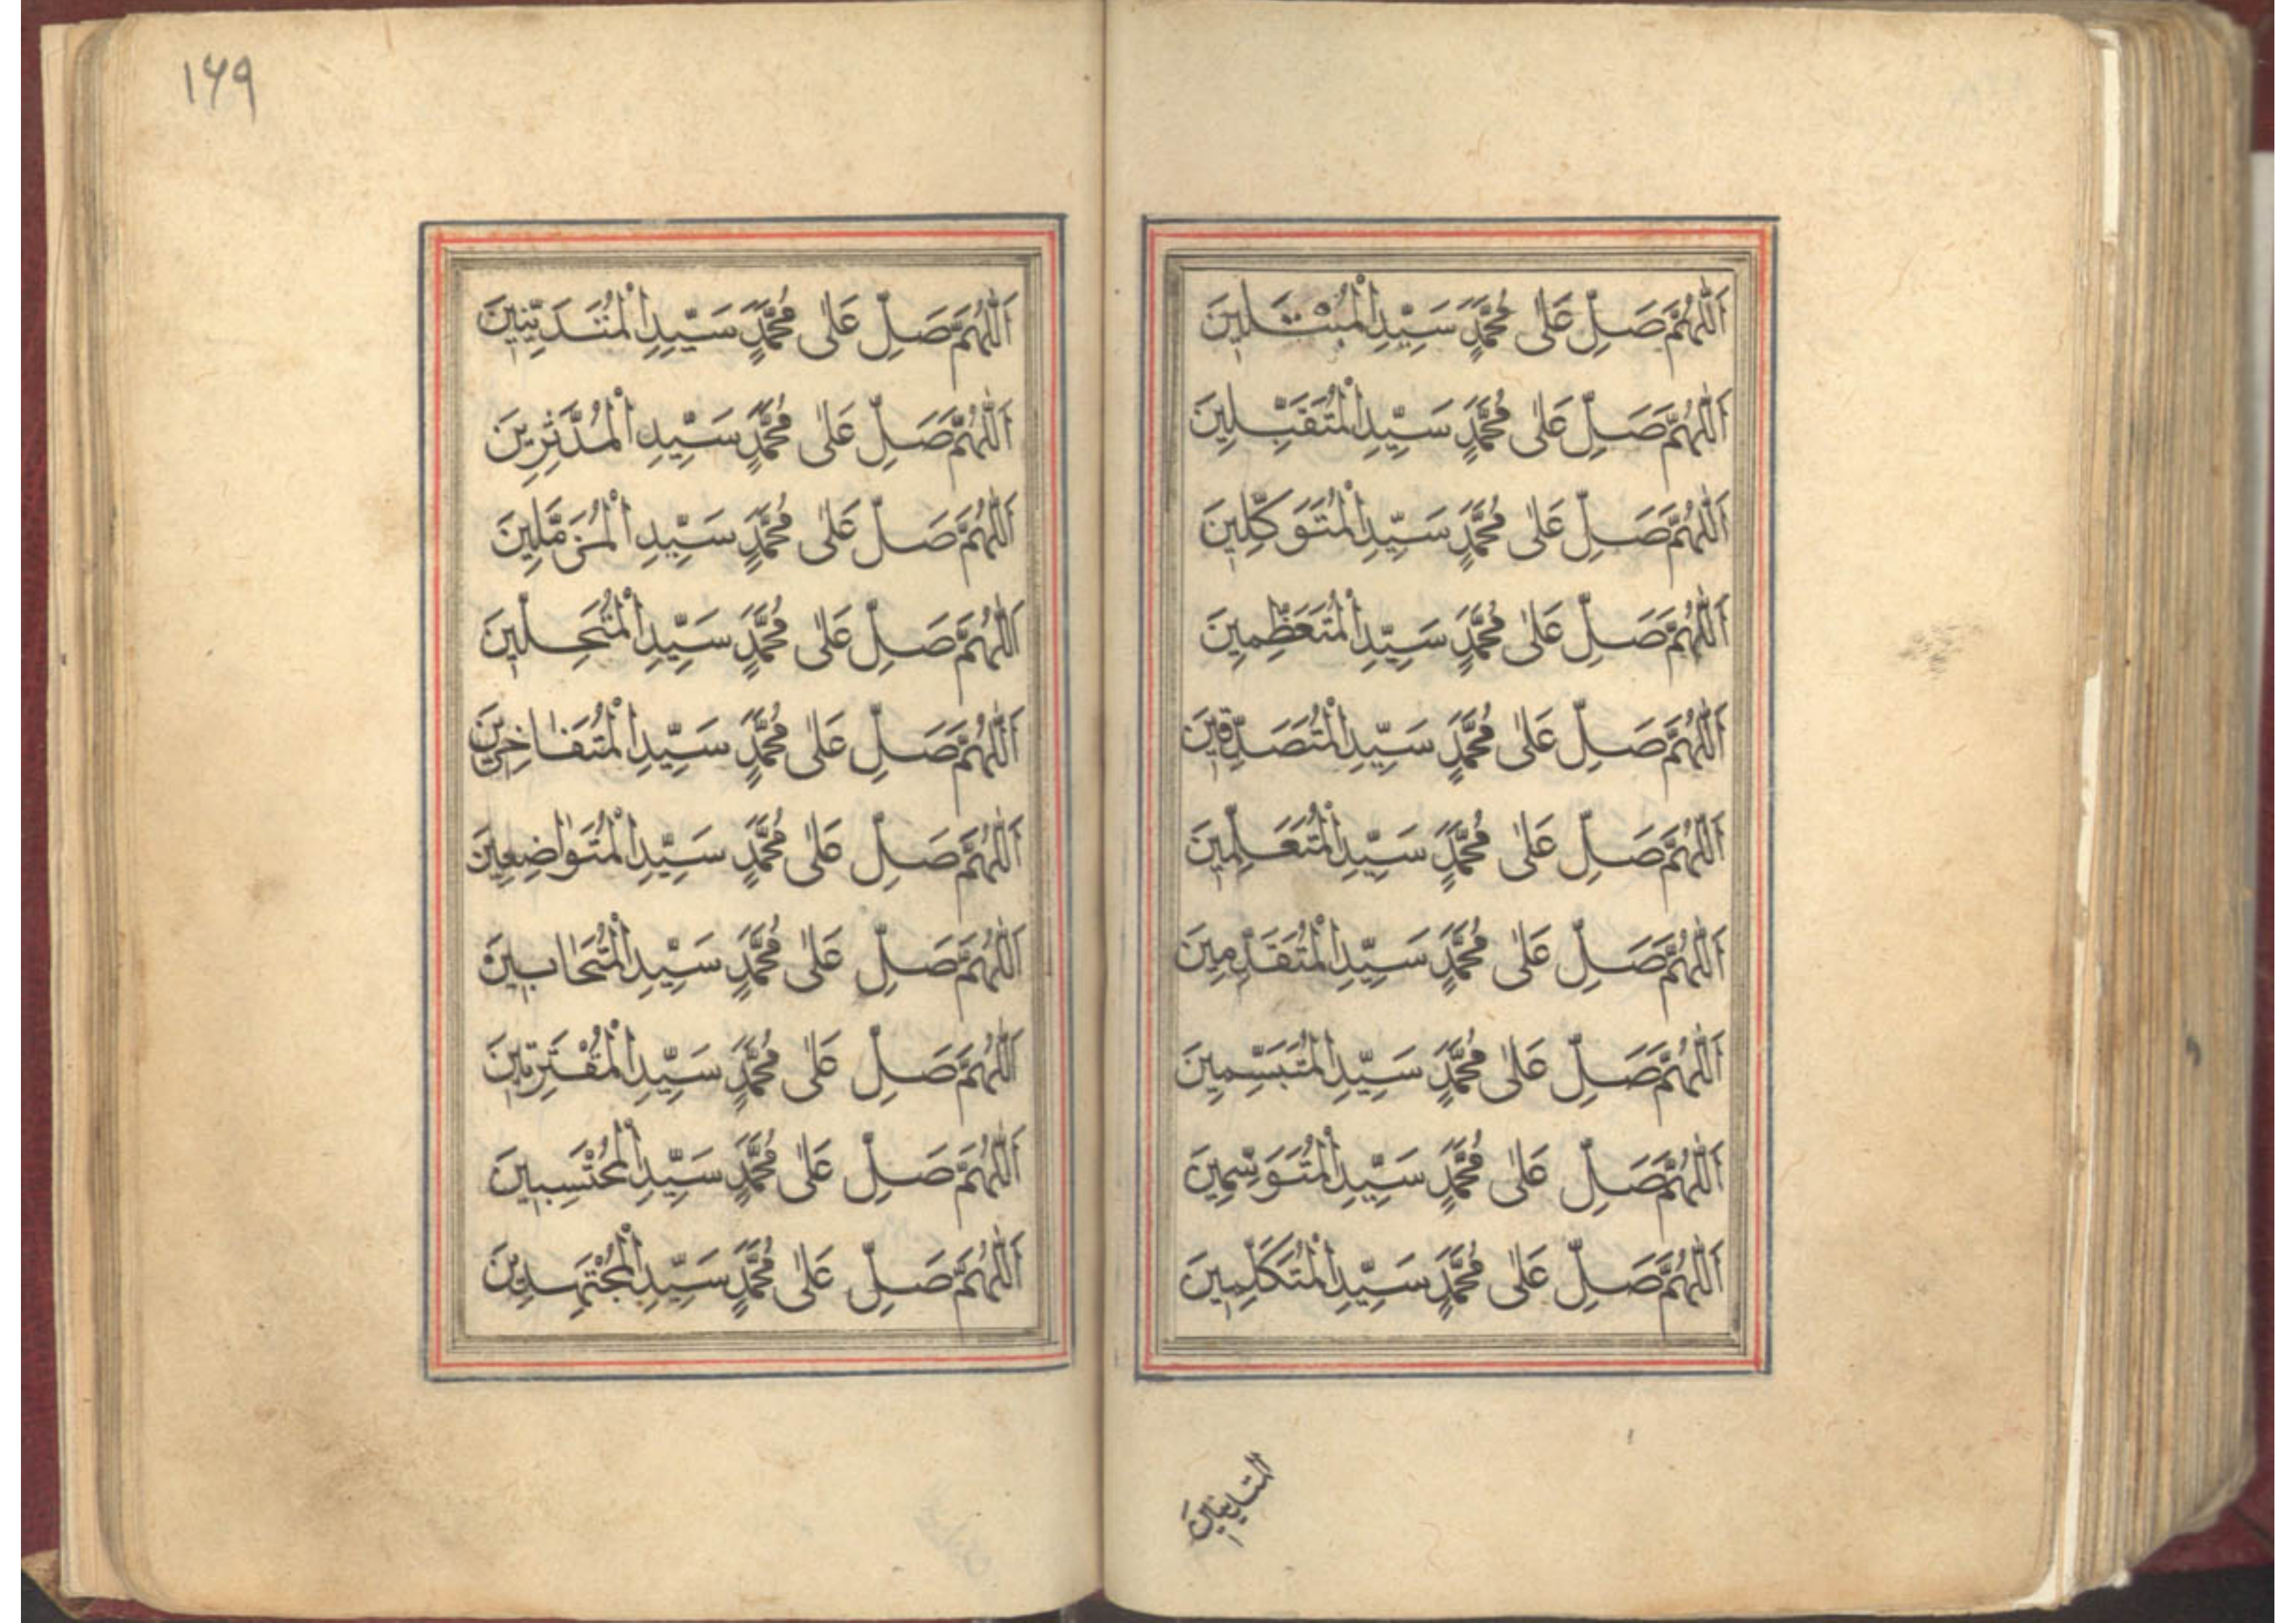 اَللّٰهُمَّ صَلِّ عَلٰى مُحَمَّدٍ سَيِّدِ
اَللّٰهُمَّ صَلِّ عَلٰى مُحَمَّدٍ سَيِّدِ الْمُتَقَبِّلِينَ
اَللّٰهُمَّ صَلِّ عَلٰى مُحَمَّدٍ سَيِّدِ الْمُتَوَكِّلِينَ
اَللّٰهُمَّ صَلِّ عَلٰى مُحَمَّدٍ سَيِّدِ الْمُتَعَظِّمِينَ
اَللّٰهُمَّ صَلِّ عَلٰى مُحَمَّدٍ سَيِّدِ الْمُتَصَدِّقِينَ
اَللّٰهُمَّ صَلِّ عَلٰى مُحَمَّدٍ سَيِّدِ الْمُتَعَلِّمِينَ
اَللّٰهُمَّ صَلِّ عَلٰى مُحَمَّدٍ سَيِّدِ الْمُتَقَدِّمِينَ
اَللّٰهُمَّ صَلِّ عَلٰى مُحَمَّدٍ سَيِّدِ الْمُتَبَسِّمِينَ
اَللّٰهُمَّ صَلِّ عَلٰى مُحَمَّدٍ سَيِّدِ الْمُتَوَسِّمِينَ
اَللّٰهُمَّ صَلِّ عَلٰى مُحَمَّدٍ سَيِّدِ الْمُتَكَلِّمِينَ
١٦٩
اَللّٰهُمَّ صَلِّ عَلٰى مُحَمَّدٍ سَيِّدِ الْمُتَدَيِّنِينَ
اَللّٰهُمَّ صَلِّ عَلٰى مُحَمَّدٍ سَيِّدِ الْمُدَّثِّرِينَ
اَللّٰهُمَّ صَلِّ عَلٰى مُحَمَّدٍ سَيِّدِ الْمُزَمِّلِينَ
اَللّٰهُمَّ صَلِّ عَلٰى مُحَمَّدٍ سَيِّدِ
اَللّٰهُمَّ صَلِّ عَلٰى مُحَمَّدٍ سَيِّدِ الْمُتَفَاخِرِينَ
اَللّٰهُمَّ صَلِّ عَلٰى مُحَمَّدٍ سَيِّدِ الْمُتَوَاضِعِينَ
اَللّٰهُمَّ صَلِّ عَلٰى مُحَمَّدٍ سَيِّدِ الْمُتَحَابِينَ
اَللّٰهُمَّ صَلِّ عَلٰى مُحَمَّدٍ سَيِّدِ الْمُقْتَرِبِينَ
اَللّٰهُمَّ صَلِّ عَلٰى مُحَمَّدٍ سَيِّدِ الْمُحْتَسِبِينَ
اَللّٰهُمَّ صَلِّ عَلٰى مُحَمَّدٍ سَيِّدِ الْمُجْتَهِدِينَ